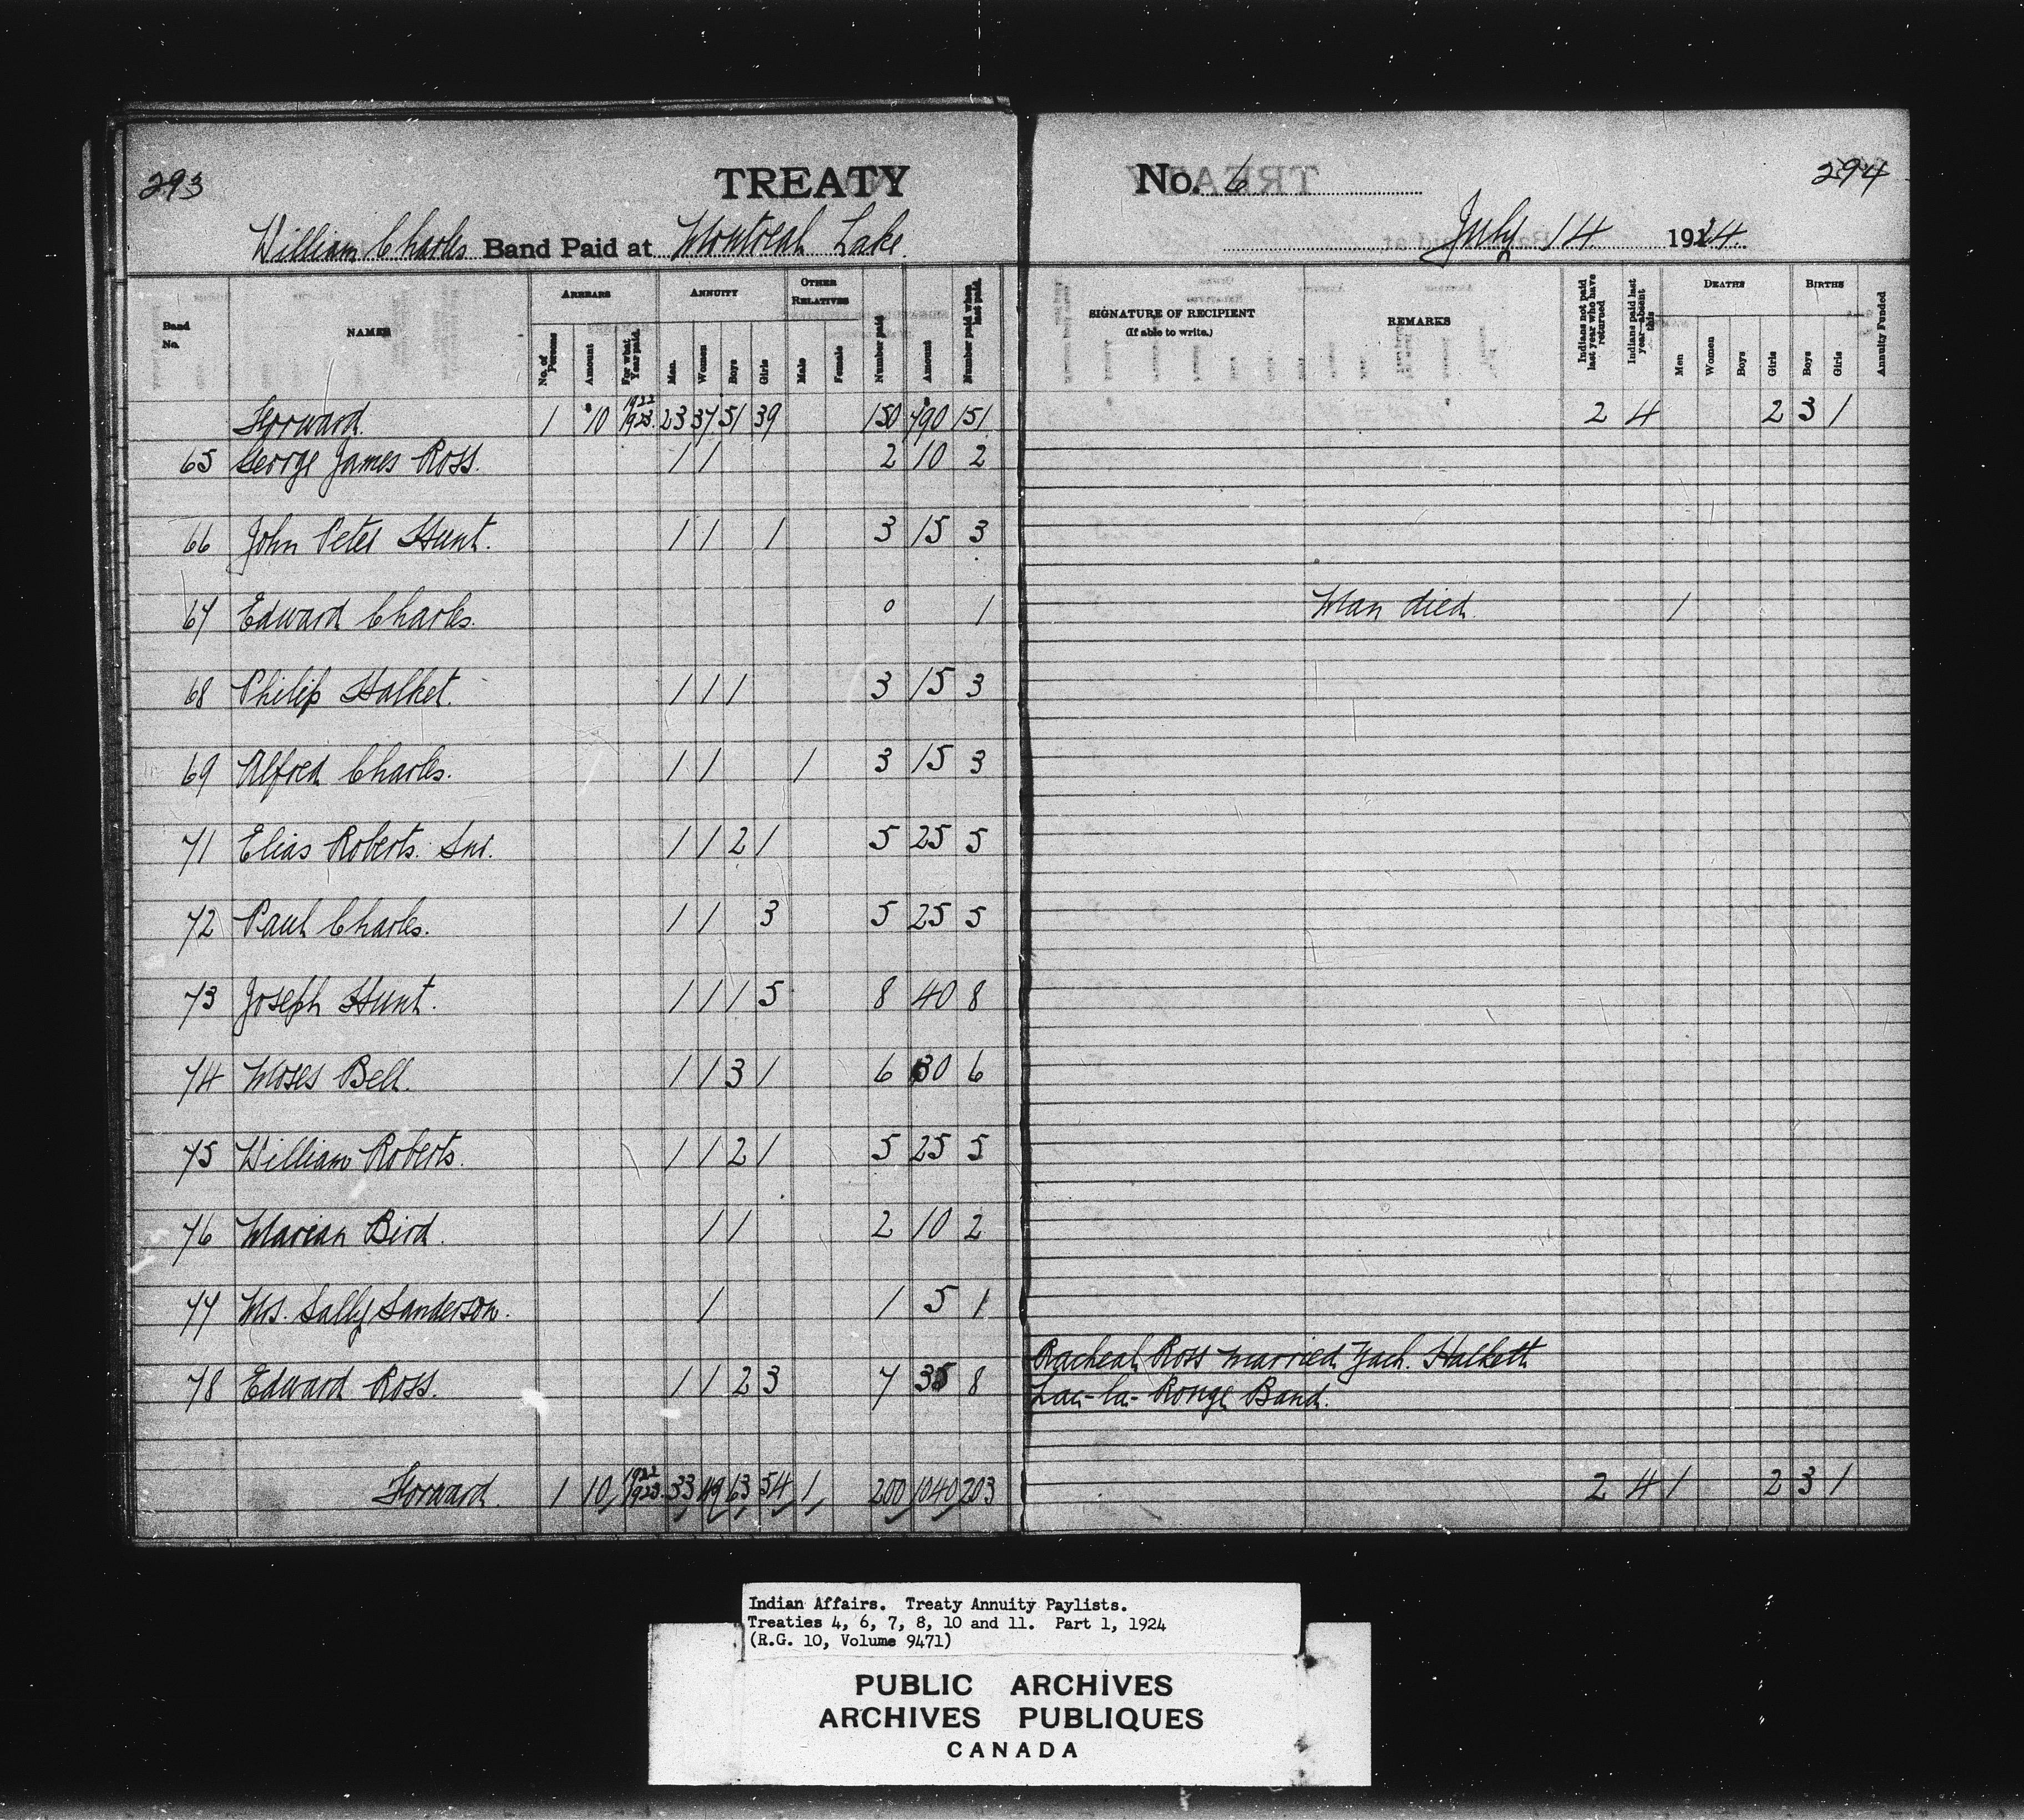 293 TREATY No. 6 294
William Charles Band Paid at Montreal Lake. July 14 1924.
Band No. NAMES ARREARS ANNUITY OTHER RELATIVES Number paid Amount Number paid when last paid. SIGNATURE OF RECIPIENT (If able to write.) REMARKS Indians not paid last year who have returned Indians paid last year—absent this DEATHS BIRTHS Annuity Funded
No. of Persons Amount For what Year paid. Men. Women Boys Girls Male Female Men Women Boys Girls Boys Girls
Forward. 1 10 1922 1923. 23 37 51 39 150 790 151 2 4 2 3 1
65 George James Ross. 1 1 2 10 2
66 John Peter Hunt. 1 1 1 3 15 3
67 Edward Charles. 0 1 Man died. 1
68 Philip Halket. 1 1 1 3 15 3
69 Alfred Charles. 1 1 1 3 15 3
71 Elias Roberts. Snr. 1 1 2 1 5 25 5
72 Paul Charles. 1 1 3 5 25 5
73 Joseph Hunt. 1 1 1 5 8 40 8
74 Moses Bell. 1 1 3 1 6 30 6
75 William Roberts. 1 1 2 1 5 25 5
76 Marian Bird. 1 1 2 10 2
77 Mrs. Sally Sanderson. 1 1 5 1
Racheal Ross married Zach. Halkett
78 Edward Ross. 1 1 2 3 7 35 8 Lac-la-Ronge Band.
Forward. 1 10 1922 1923. 33 49 63 54 1 200 1040 203 2 4 1 2 3 1
Indian Affairs. Treaty Annuity Paylists.
Treaties 4, 6, 7, 8, 10 and 11. Part 1, 1924
(R.G. 10, Volume 9471)
PUBLIC ARCHIVES
ARCHIVES PUBLIQUES
CANADA